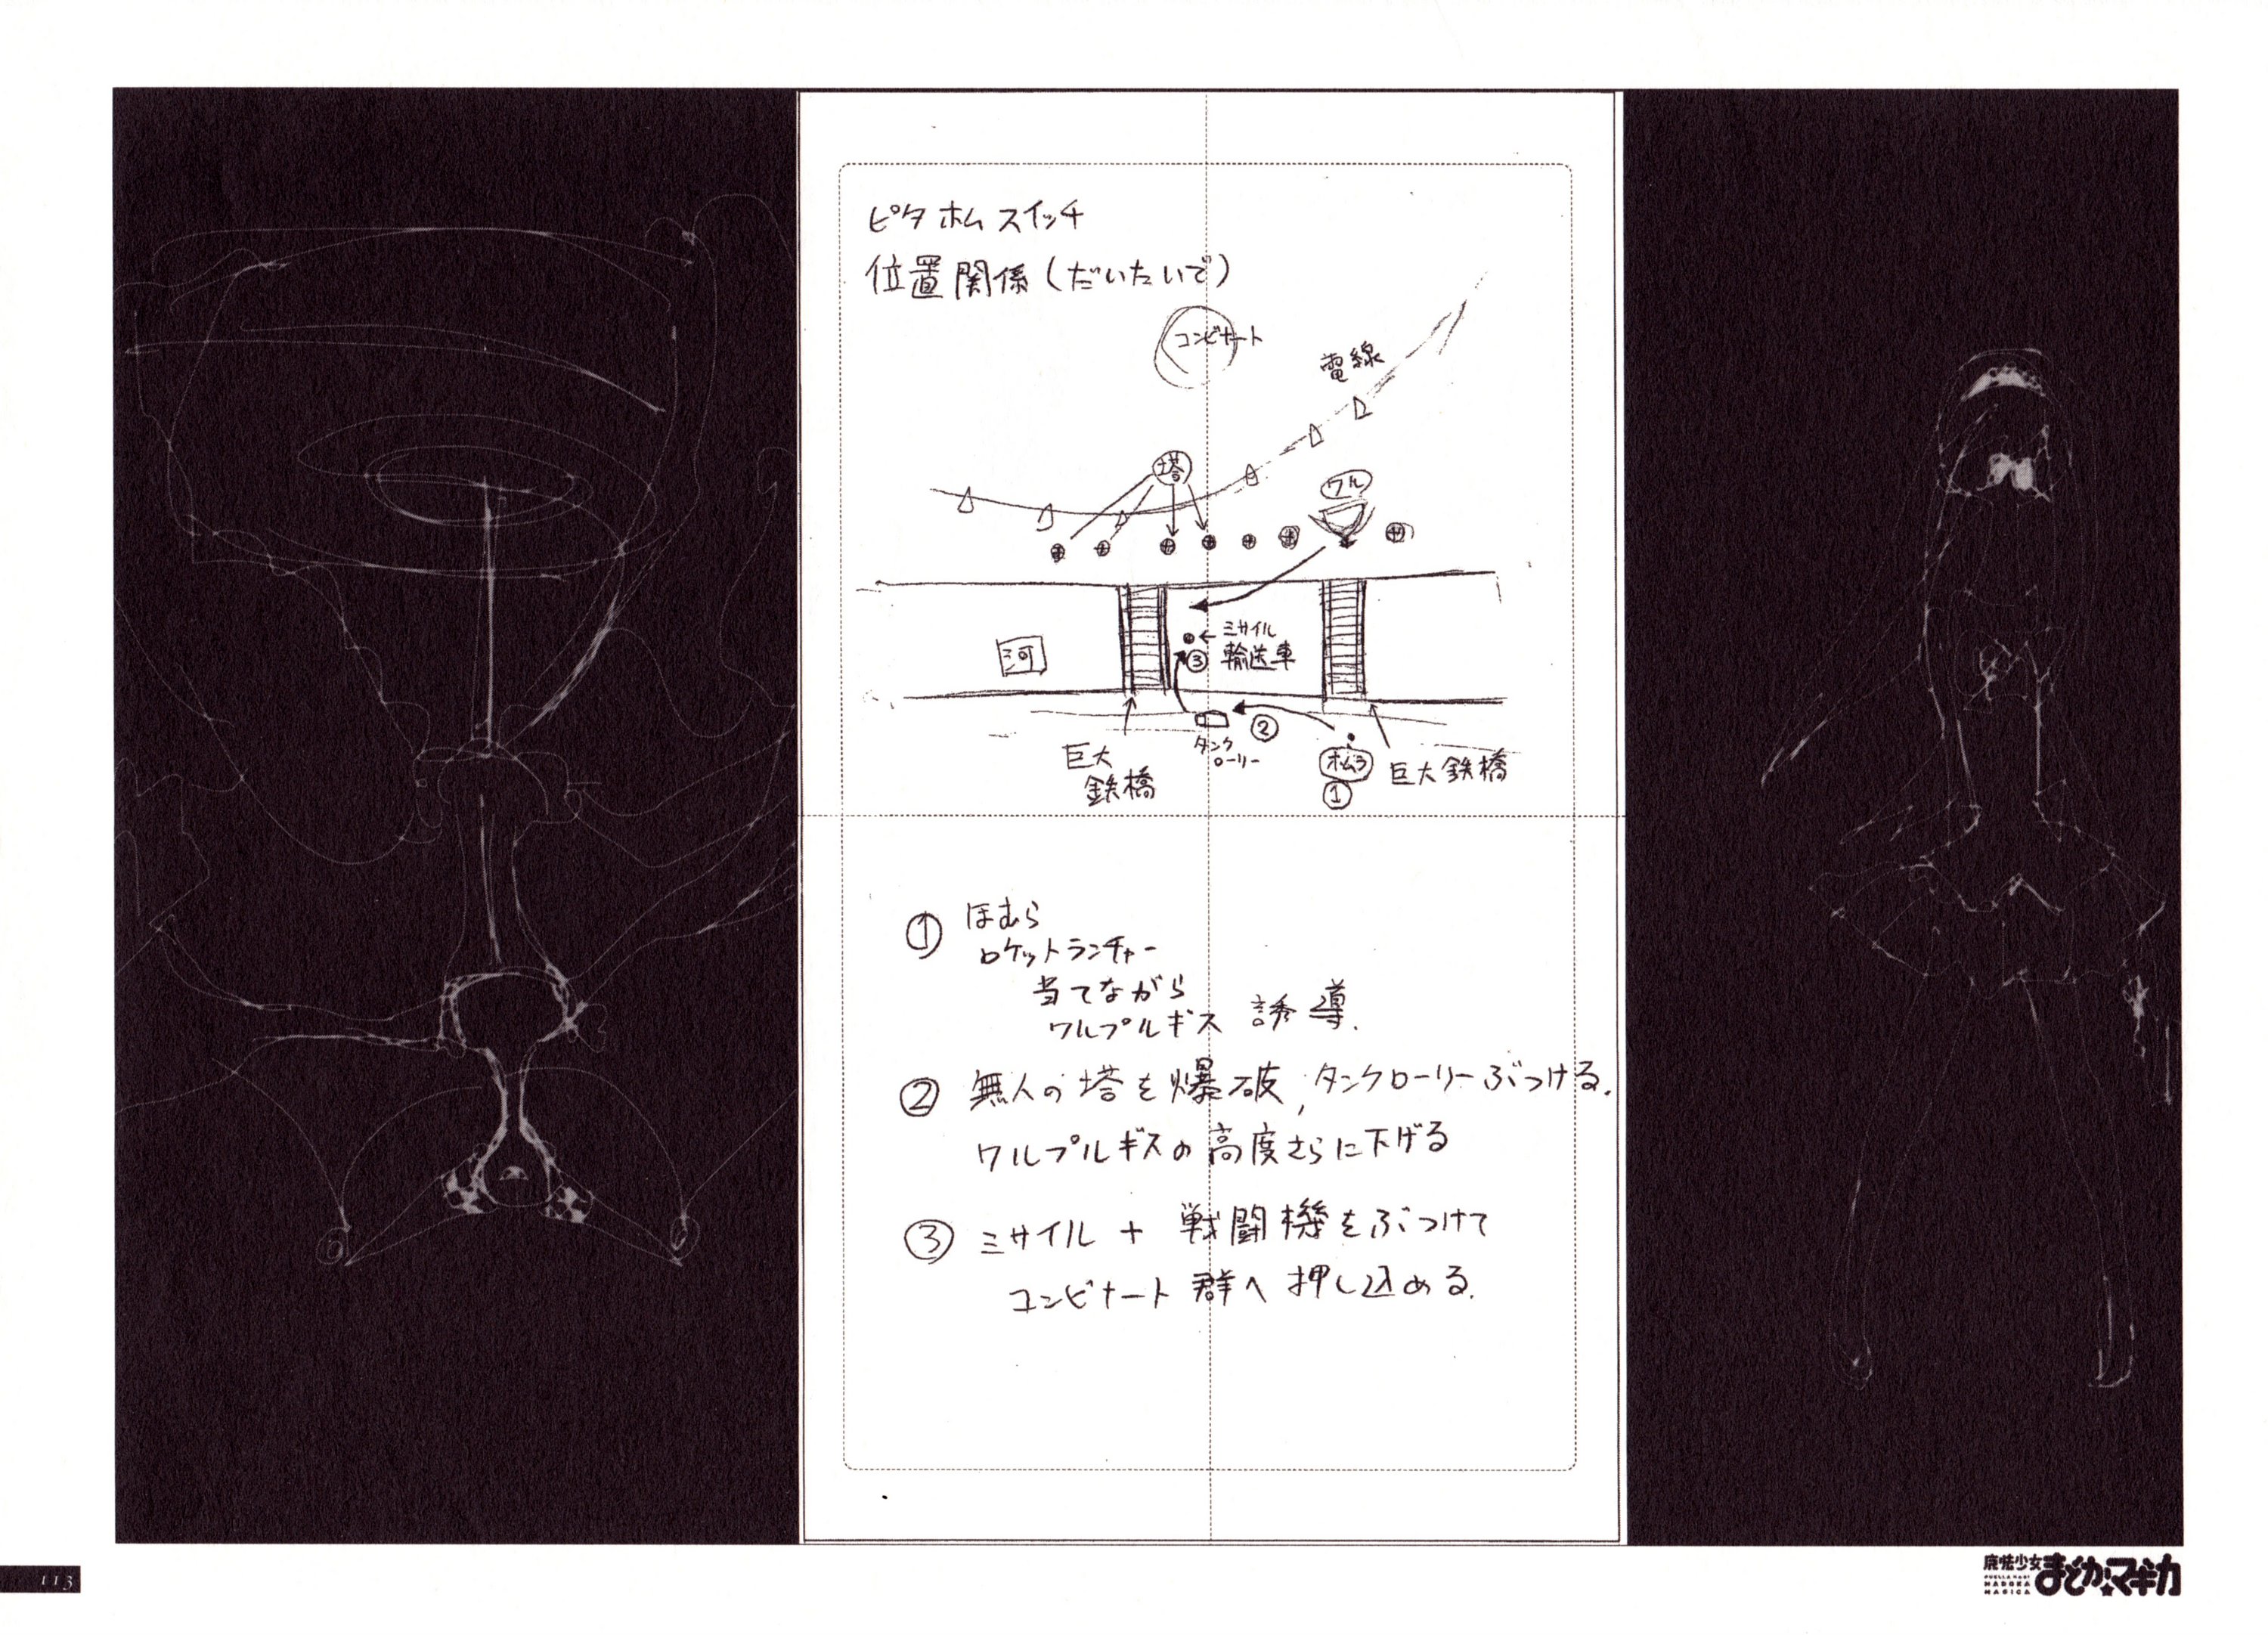 ピタホムスイッチ
位置関係(だいたいで)
コンビナート
電線
塔
ワル
河
③
←ミサイル
輸送車
②
タンク
ローリー
巨大
鉄橋
ホムラ
①
巨大鉄橋
① ほむら
ロケットランチャー
当てながら
ワルプルギス 誘導.
② 無人の塔を爆破,タンクローリーぶつける.
ワルプルギスの高度さらに下げる
③ ミサイル + 戦闘機をぶつけて
コンビナート群へ押し込める.
113
魔法少女
まどか☆マギカ
PUELLA MAGI
MADOKA
MAGICA